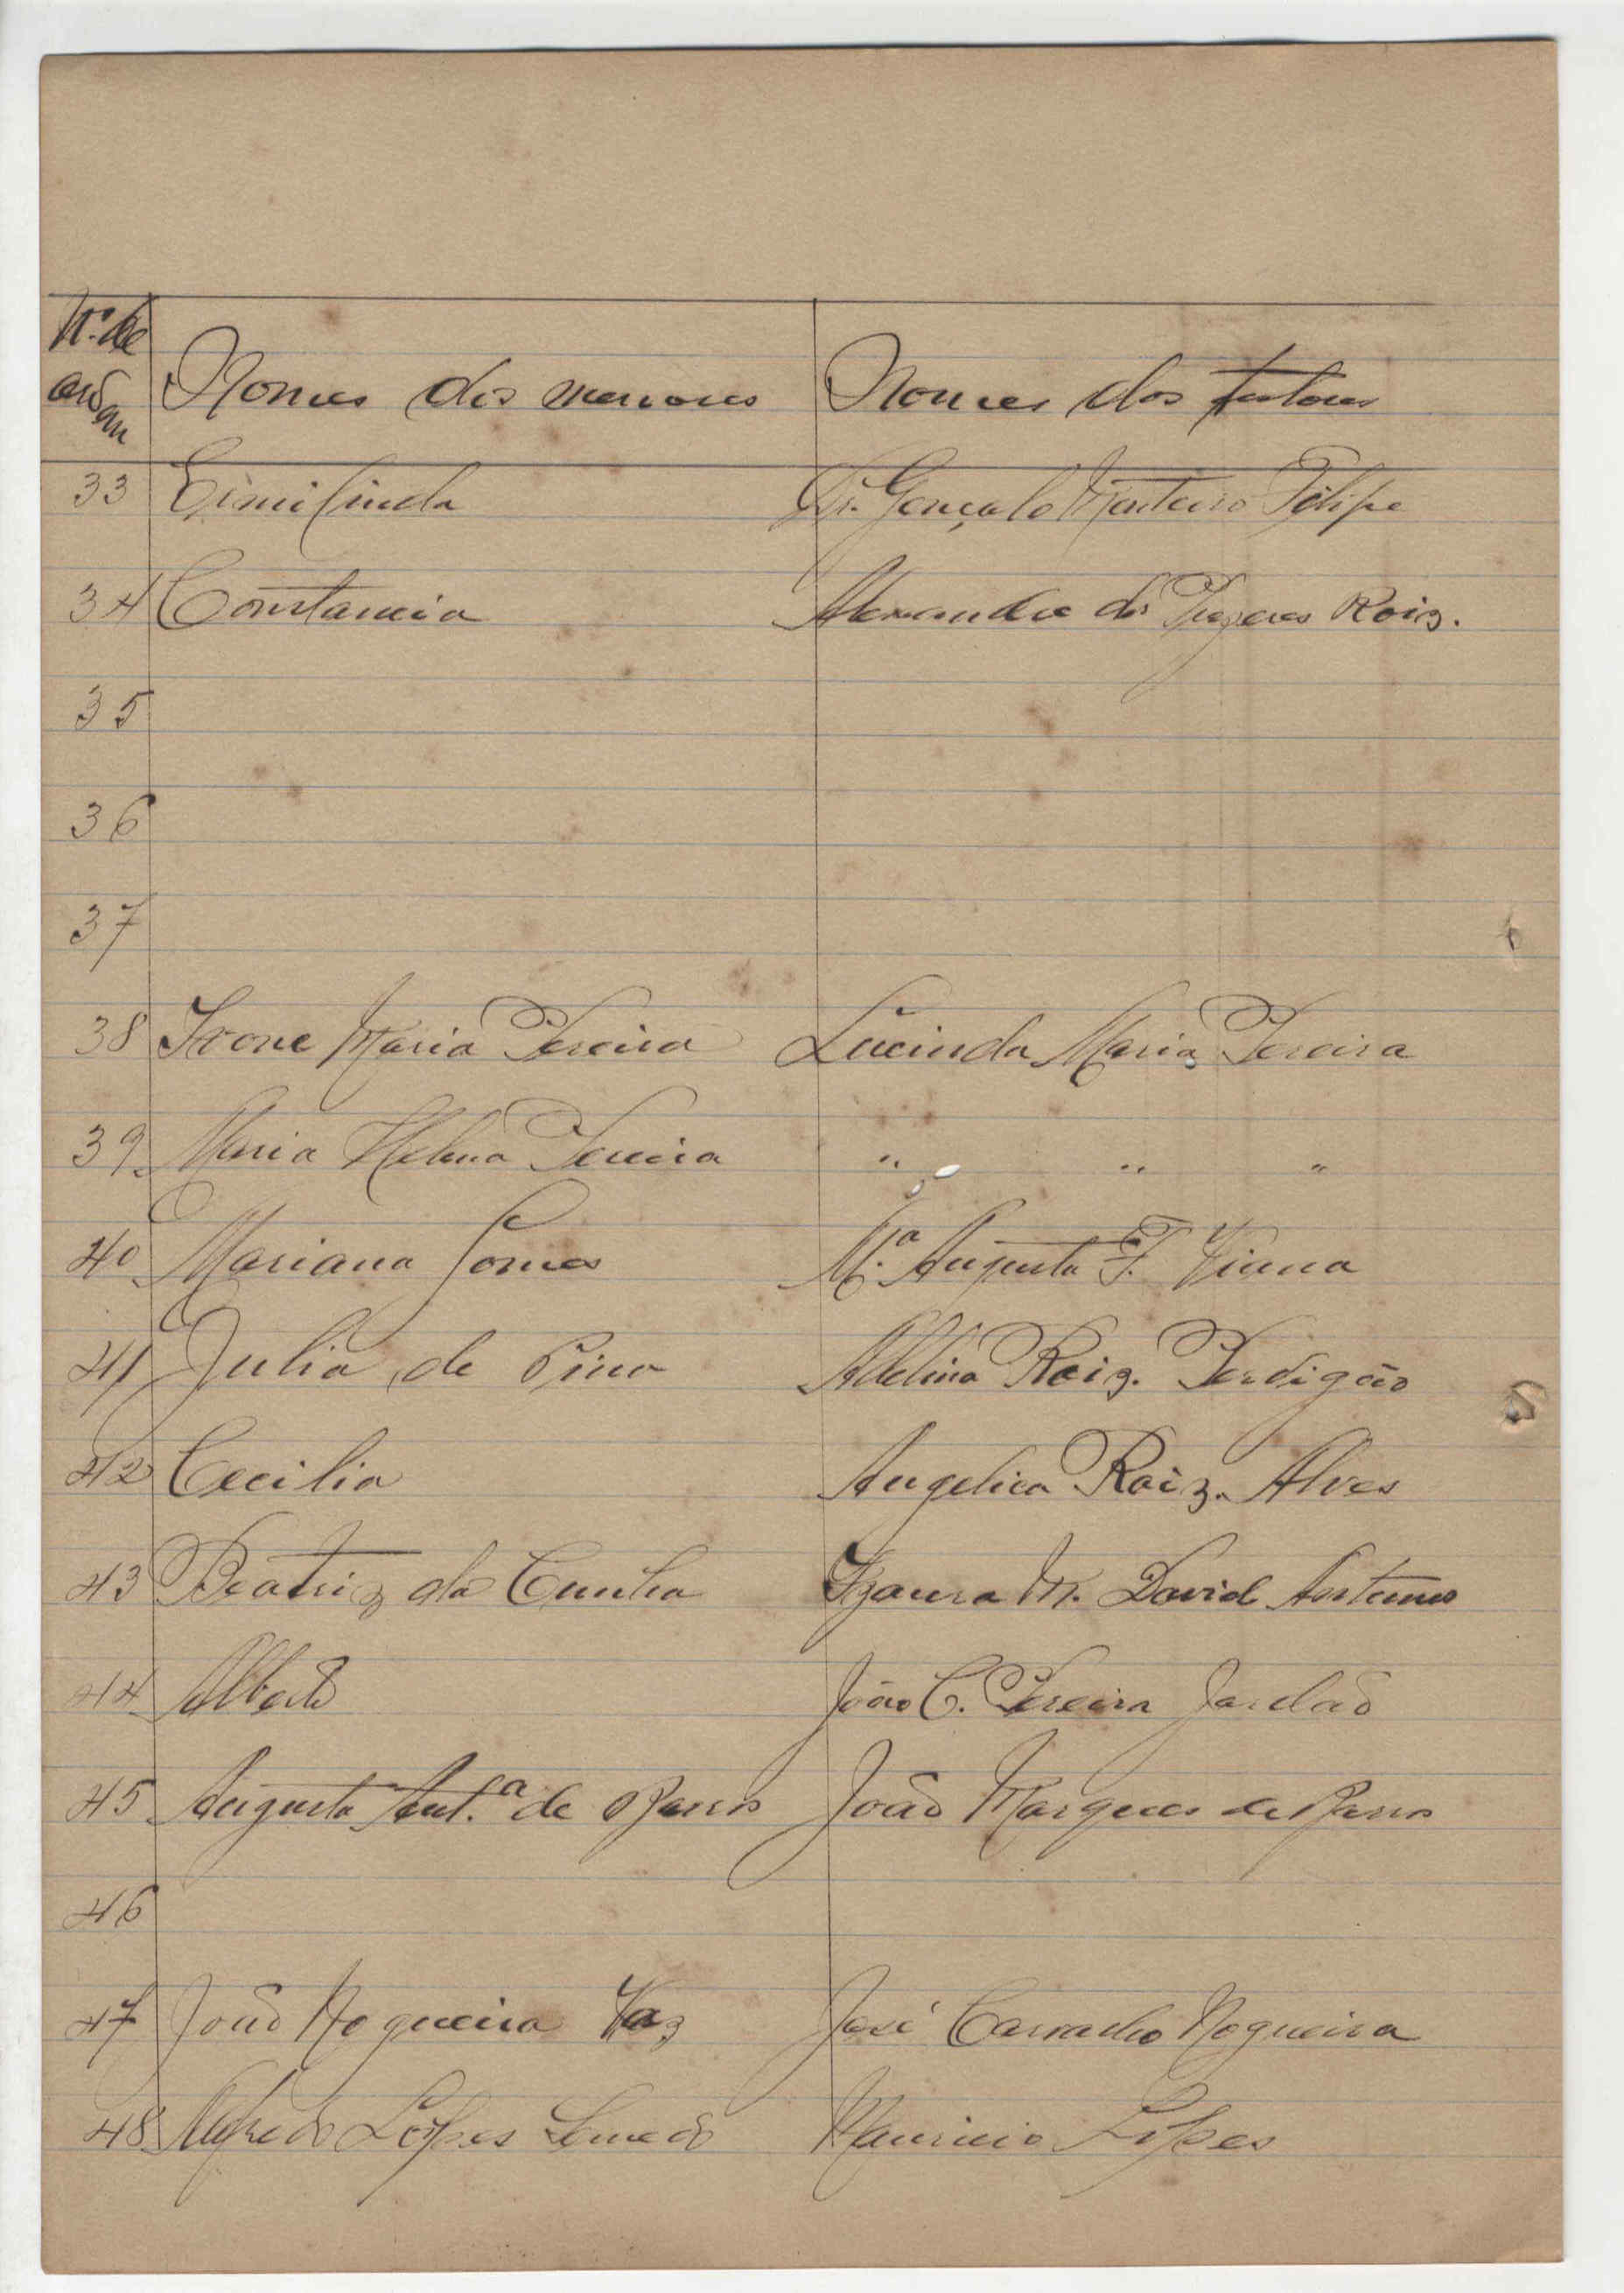 Nº. de ordem Nomes dos menores Nomes dos tutores
33 Ermilinda Dr. Gonçalo Monteiro Filipe
34 Constancia Alexandre dos Prazeres Roiz.
35
36
37
38 Ivone Maria Pereira Lucinda Maria Pereira
39 Maria Helena Pereira " " "
40 Mariana Gomes M.ª Augusta F. Viana
41 Julia de Pina Adelina Roiz. Perdigão
42 Cecilia Angelica Roiz. Alves
43 Beatriz da Cunha Izaura M. David Antunes
44 Alberto João C. Pereira Jordão
45 Augusta Ant.ª de Barros João Marques de Barros
46
47 João Nogueira Vaz José Carracho Nogueira
48 Alfredo Lopes Semedo Mauricio Lopes